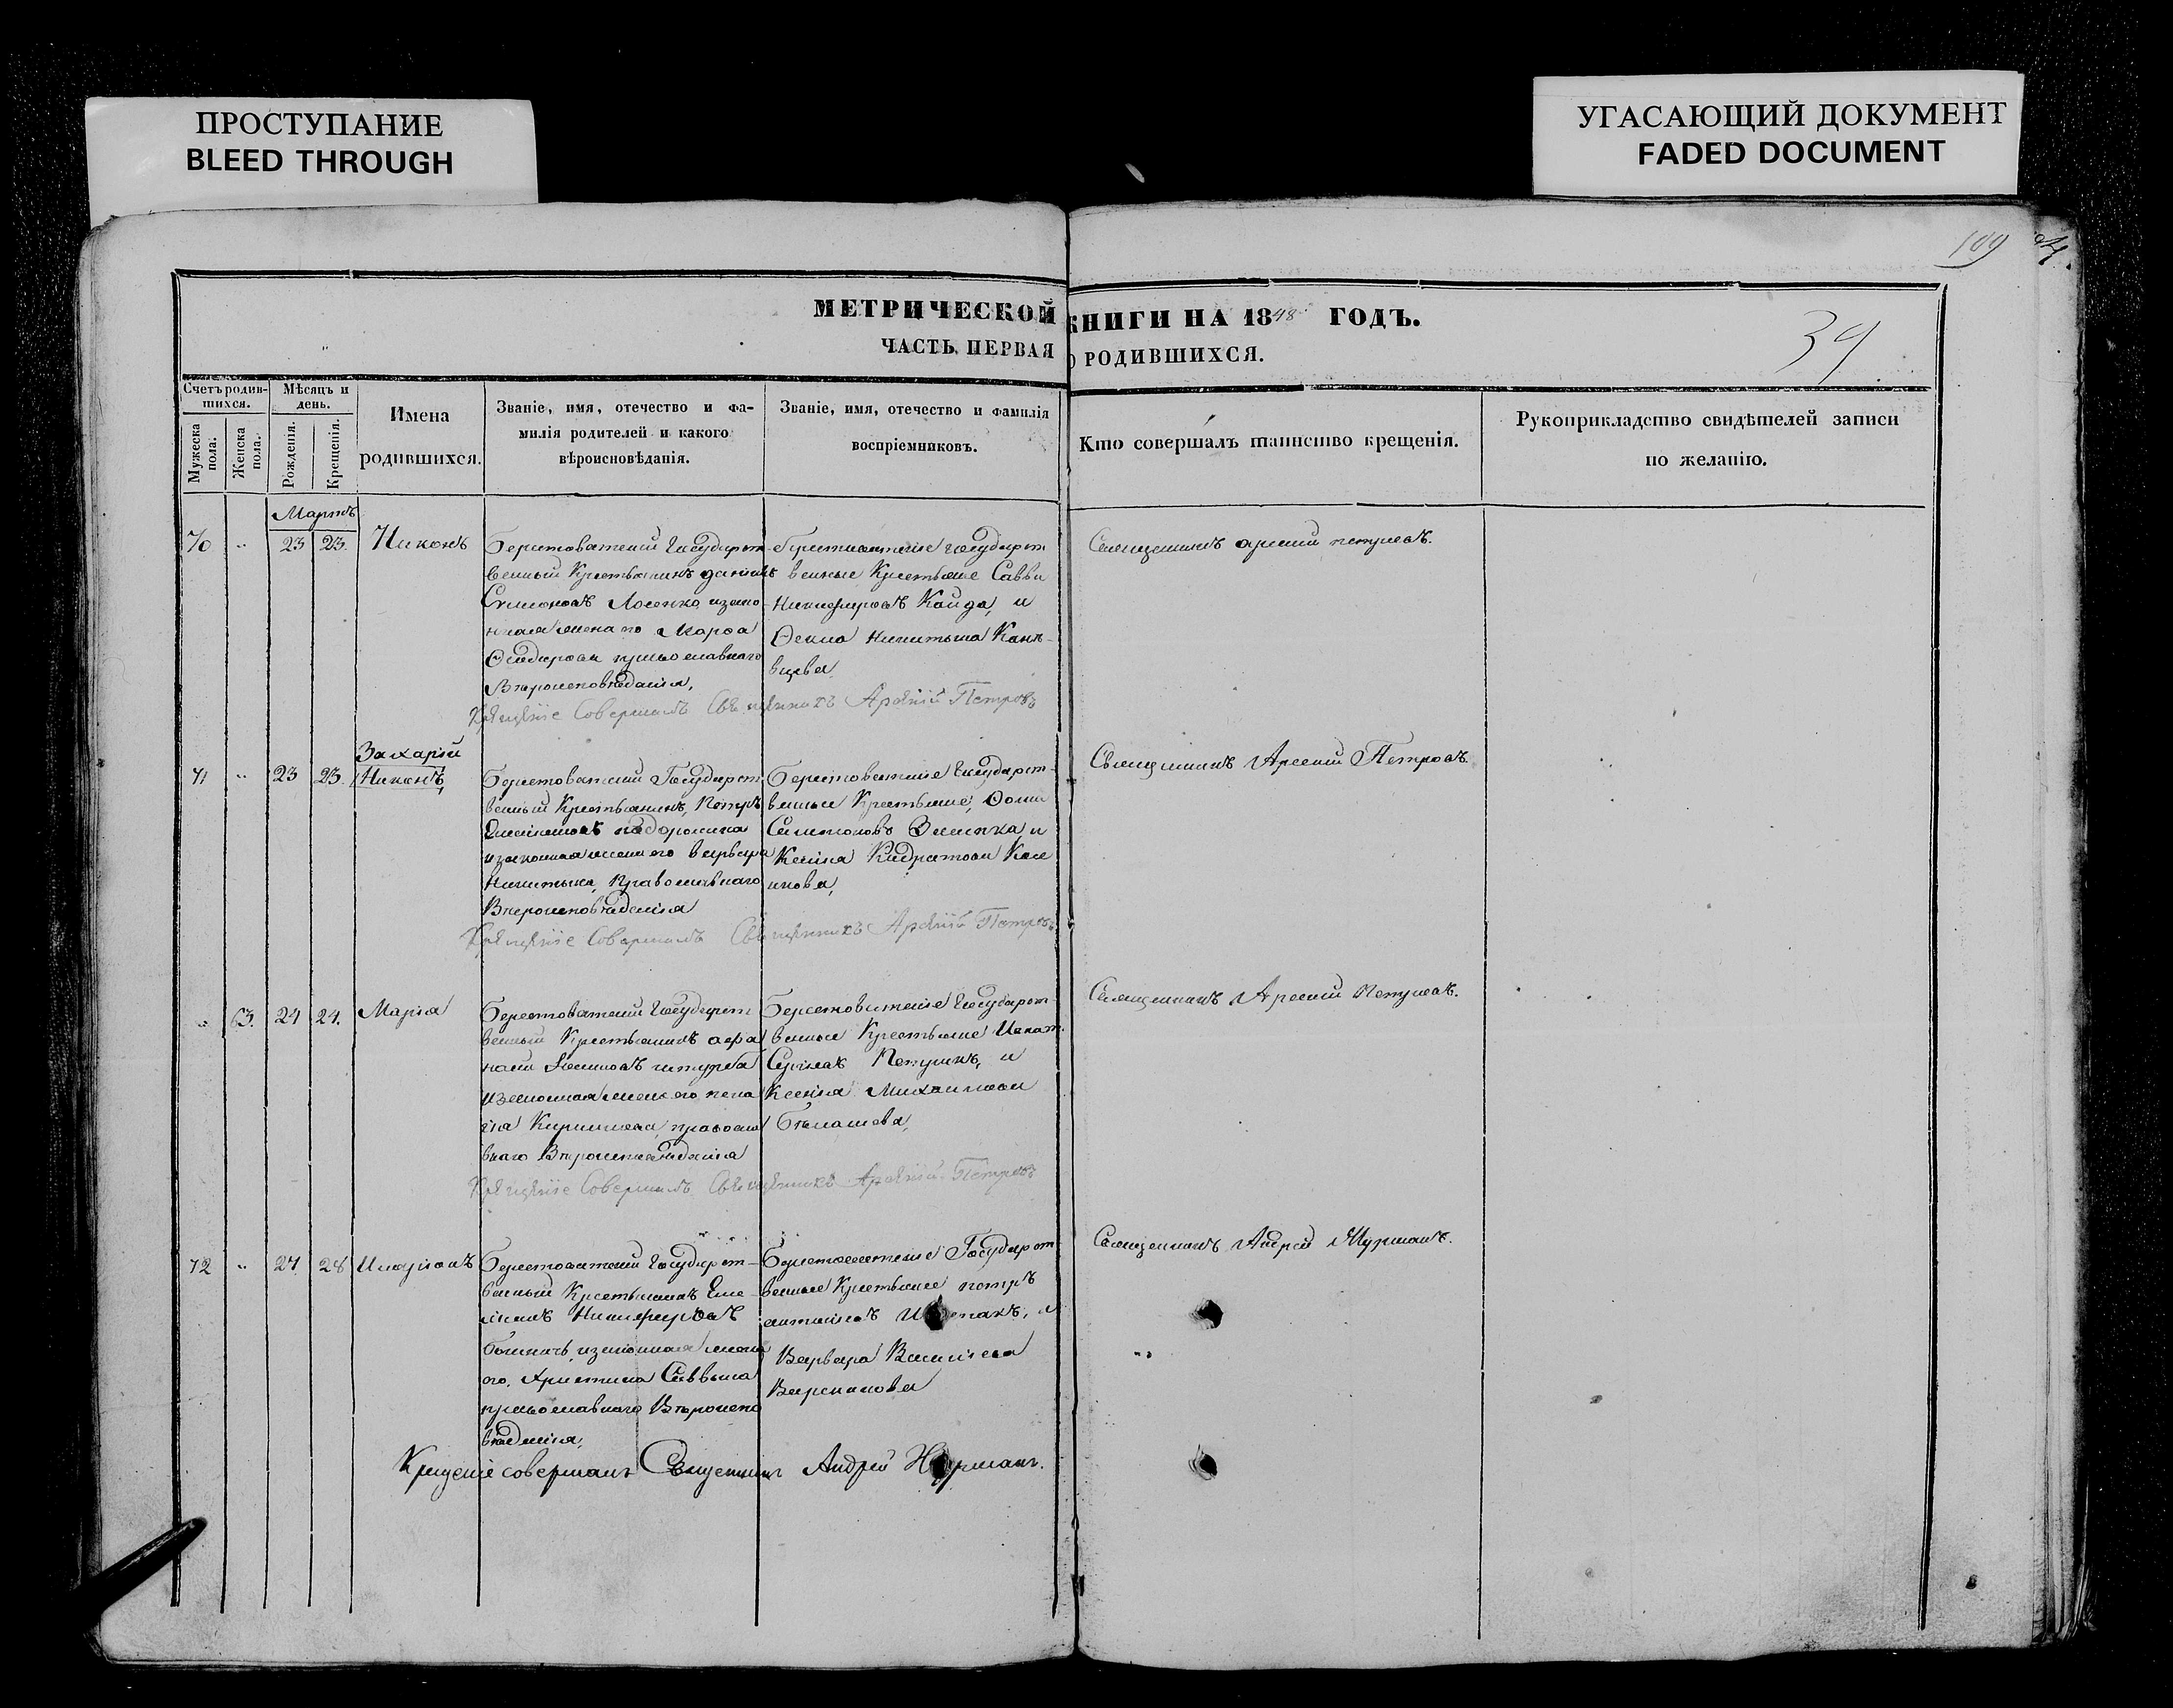 ПРОСТУПАНИЕ
BLEED THROUGH
УГАСАЮЩИЙ ДОКУМЕНТ
FADED DOCUMENT
109
39
МЕТРИЧЕСКОЙ КНИГИ НА 1848 ГОДЪ.
ЧАСТЬ ПЕРВАЯ О РОДИВШИХСЯ.
Счетъ родив-
шихся.
Мужеска пола.
Женска пола.
Мѣсяцъ и
день.
Рожденія.
Крещенія.
Имена
родившихся.
Званіе, имя, отечество и фа-
милія родителей и какого
вѣроисновѣданія.
Званіе, имя, отечество и фамилія
воспріемниковъ.
Кто совершалъ таинство крещенія.
Рукоприкладство свидѣтелей записи
по желанію.
Мартъ
70 " 23 23. Никонъ
Берестоватскій Государст-
венный Крестьянинъ
Симоновъ изако-
нная жена его Марѳа
православнаго
Вѣроисповѣданія,
Берестоватскіе государст
венные Крестьяне Савва
Никифировъ Кайда, и
Никитина
Священникъ Арсеній Петровъ.
Крещеніе Совершалъ Священникъ Арсеній Петровъ
71 " 23 23.
Захарій
Никонъ,
Берестоватскій Государст
венный Крестьянинъ, Петръ
изаконная жена его Варвара
Никитина, Православнаго
Вѣроисповѣданія
Берестоватскіе Государст-
венные Крестьяне, Ѳома
Симоновъ и
Ксенія
Священникъ Арсеній Петровъ
Крещеніе Совершалъ Священникъ Арсеній Петровъ
" 63. 24 24. Марія
Берестоватскій Государст
венный Крестьянинъ Афа
насій
изаконная жена его Пела
гія Кирилова, православ
наго Вѣроисповѣданія
Берестоватскіе Государст
венные Крестьяне Игнат.
Петрикъ, и
Ксенія Михаилова
Священникъ Арсеній Петровъ.
Крещеніе Совершалъ Священникъ Арсеній Петровъ
72 " 27 28 Иларіонъ
Берестоватскій Государст-
венный Крестьянинъ Еме-
ліянъ Никифировъ
изаконная жена
его, Христина Саввина
православнаго Вѣроиспо
вѣданія,
Берестоватскіе Государст
венные Крестьяне Петръ
и
Варвара Василіева
Священникъ Андрей
Крещеніе совершалъ Священникъ Андрей